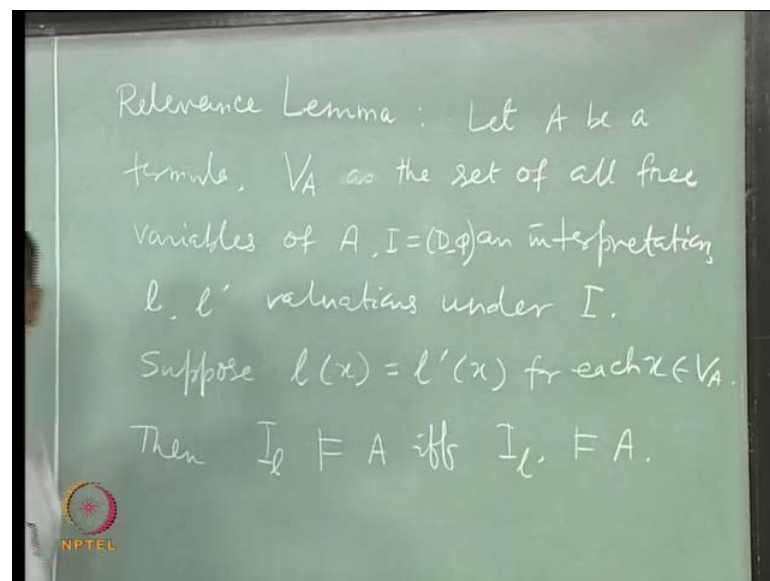 Relevance Lemma : Let A be a
formula, V_A as the set of all free
variables of A, I = (D, φ) an interpretation,
l, l′ valuations under I.
Suppose l(x) = l′(x) for each x ∈ V_A.
Then I_l ⊨ A iff I_l′ ⊨ A.
NPTEL